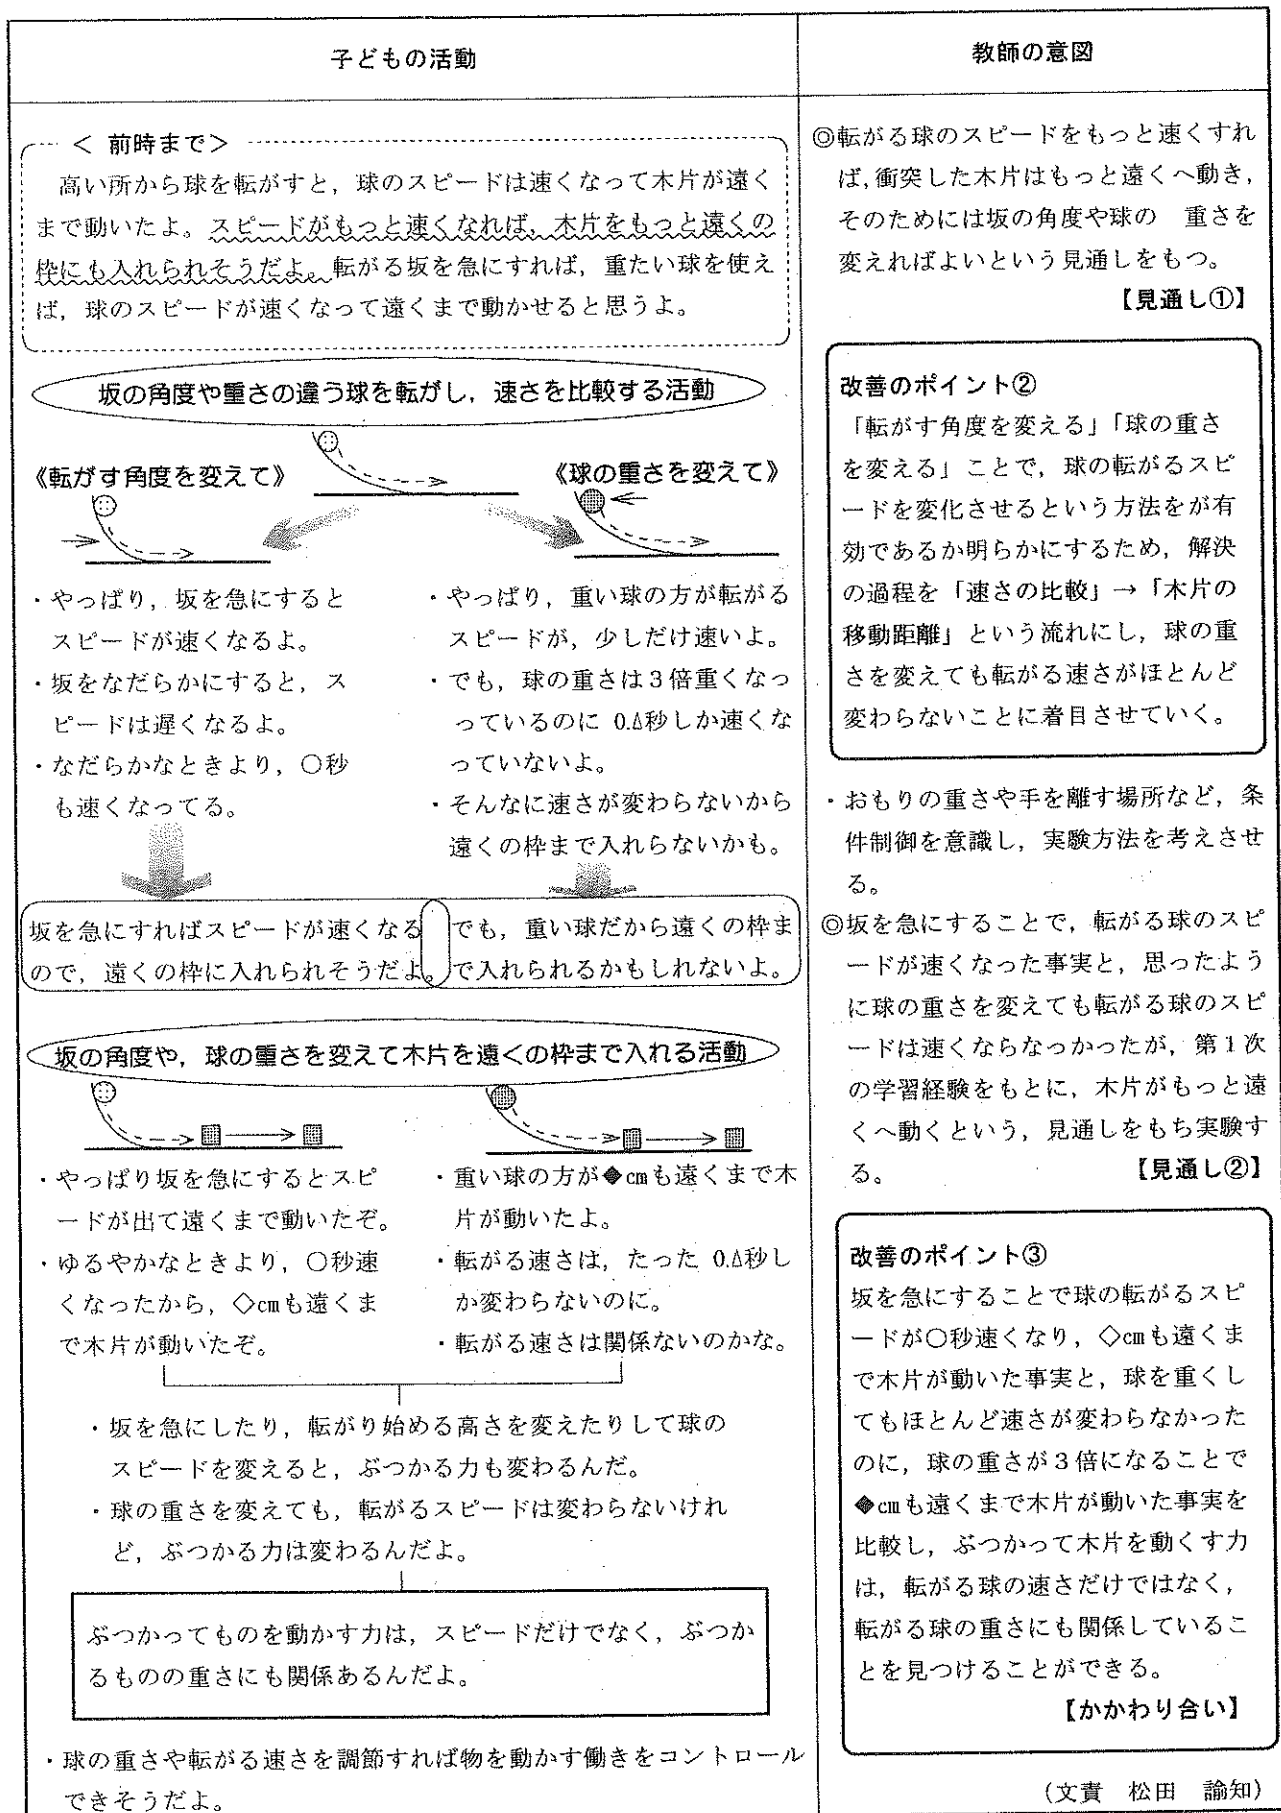 子どもの活動
教師の意図
< 前時まで>
高い所から球を転がすと，球のスピードは速くなって木片が遠く
まで動いたよ。スピードがもっと速くなれば，木片をもっと遠くの
枠にも入れられそうだよ。転がる坂を急にすれば，重たい球を使え
ば，球のスピードが速くなって遠くまで動かせると思うよ。
坂の角度や重さの違う球を転がし，速さを比較する活動
《転がす角度を変えて》
・やっぱり，坂を急にすると
スピードが速くなるよ。
・坂をなだらかにすると，ス
ピードは遅くなるよ。
・なだらかなときより，〇秒
も速くなってる。
《球の重さを変えて》
・やっぱり，重い球の方が転がる
スピードが，少しだけ速いよ。
・でも，球の重さは３倍重くなっ
っているのに 0.Δ秒しか速くな
っていないよ。
・そんなに速さが変わらないから
遠くの枠まで入れらないかも。
坂を急にすればスピードが速くなる
ので，遠くの枠に入れられそうだよ。
でも，重い球だから遠くの枠ま
で入れられるかもしれないよ。
坂の角度や，球の重さを変えて木片を遠くの枠まで入れる活動
・やっぱり坂を急にするとスピ
ードが出て遠くまで動いたぞ。
・ゆるやかなときより，〇秒速
くなったから，◇㎝も遠くま
で木片が動いたぞ。
・重い球の方が◆㎝も遠くまで木
片が動いたよ。
・転がる速さは，たった 0.Δ秒し
か変わらないのに。
・転がる速さは関係ないのかな。
・坂を急にしたり，転がり始める高さを変えたりして球の
スピードを変えると，ぶつかる力も変わるんだ。
・球の重さを変えても，転がるスピードは変わらないけれ
ど，ぶつかる力は変わるんだよ。
ぶつかってものを動かす力は，スピードだけでなく，ぶつか
るものの重さにも関係あるんだよ。
・球の重さや転がる速さを調節すれば物を動かす働きをコントロール
できそうだよ。
◎転がる球のスピードをもっと速くすれ
ば，衝突した木片はもっと遠くへ動き，
そのためには坂の角度や球の　重さを
変えればよいという見通しをもつ。
【見通し①】
改善のポイント②
「転がす角度を変える」「球の重さ
を変える」ことで，球の転がるスピ
ードを変化させるという方法をが有
効であるか明らかにするため，解決
の過程を「速さの比較」→「木片の
移動距離」という流れにし，球の重
さを変えても転がる速さがほとんど
変わらないことに着目させていく。
・おもりの重さや手を離す場所など，条
件制御を意識し，実験方法を考えさせ
る。
◎坂を急にすることで，転がる球のスピ
ードが速くなった事実と，思ったよう
に球の重さを変えても転がる球のスピ
ードは速くならなっかったが，第１次
の学習経験をもとに，木片がもっと遠
くへ動くという，見通しをもち実験す
る。
【見通し②】
改善のポイント③
坂を急にすることで球の転がるスピ
ードが〇秒速くなり，◇㎝も遠くま
で木片が動いた事実と，球を重くし
てもほとんど速さが変わらなかった
のに，球の重さが３倍になることで
◆㎝も遠くまで木片が動いた事実を
比較し，ぶつかって木片を動くす力
は，転がる球の速さだけではなく，
転がる球の重さにも関係しているこ
とを見つけることができる。
【かかわり合い】
（文責　松田　諭知）